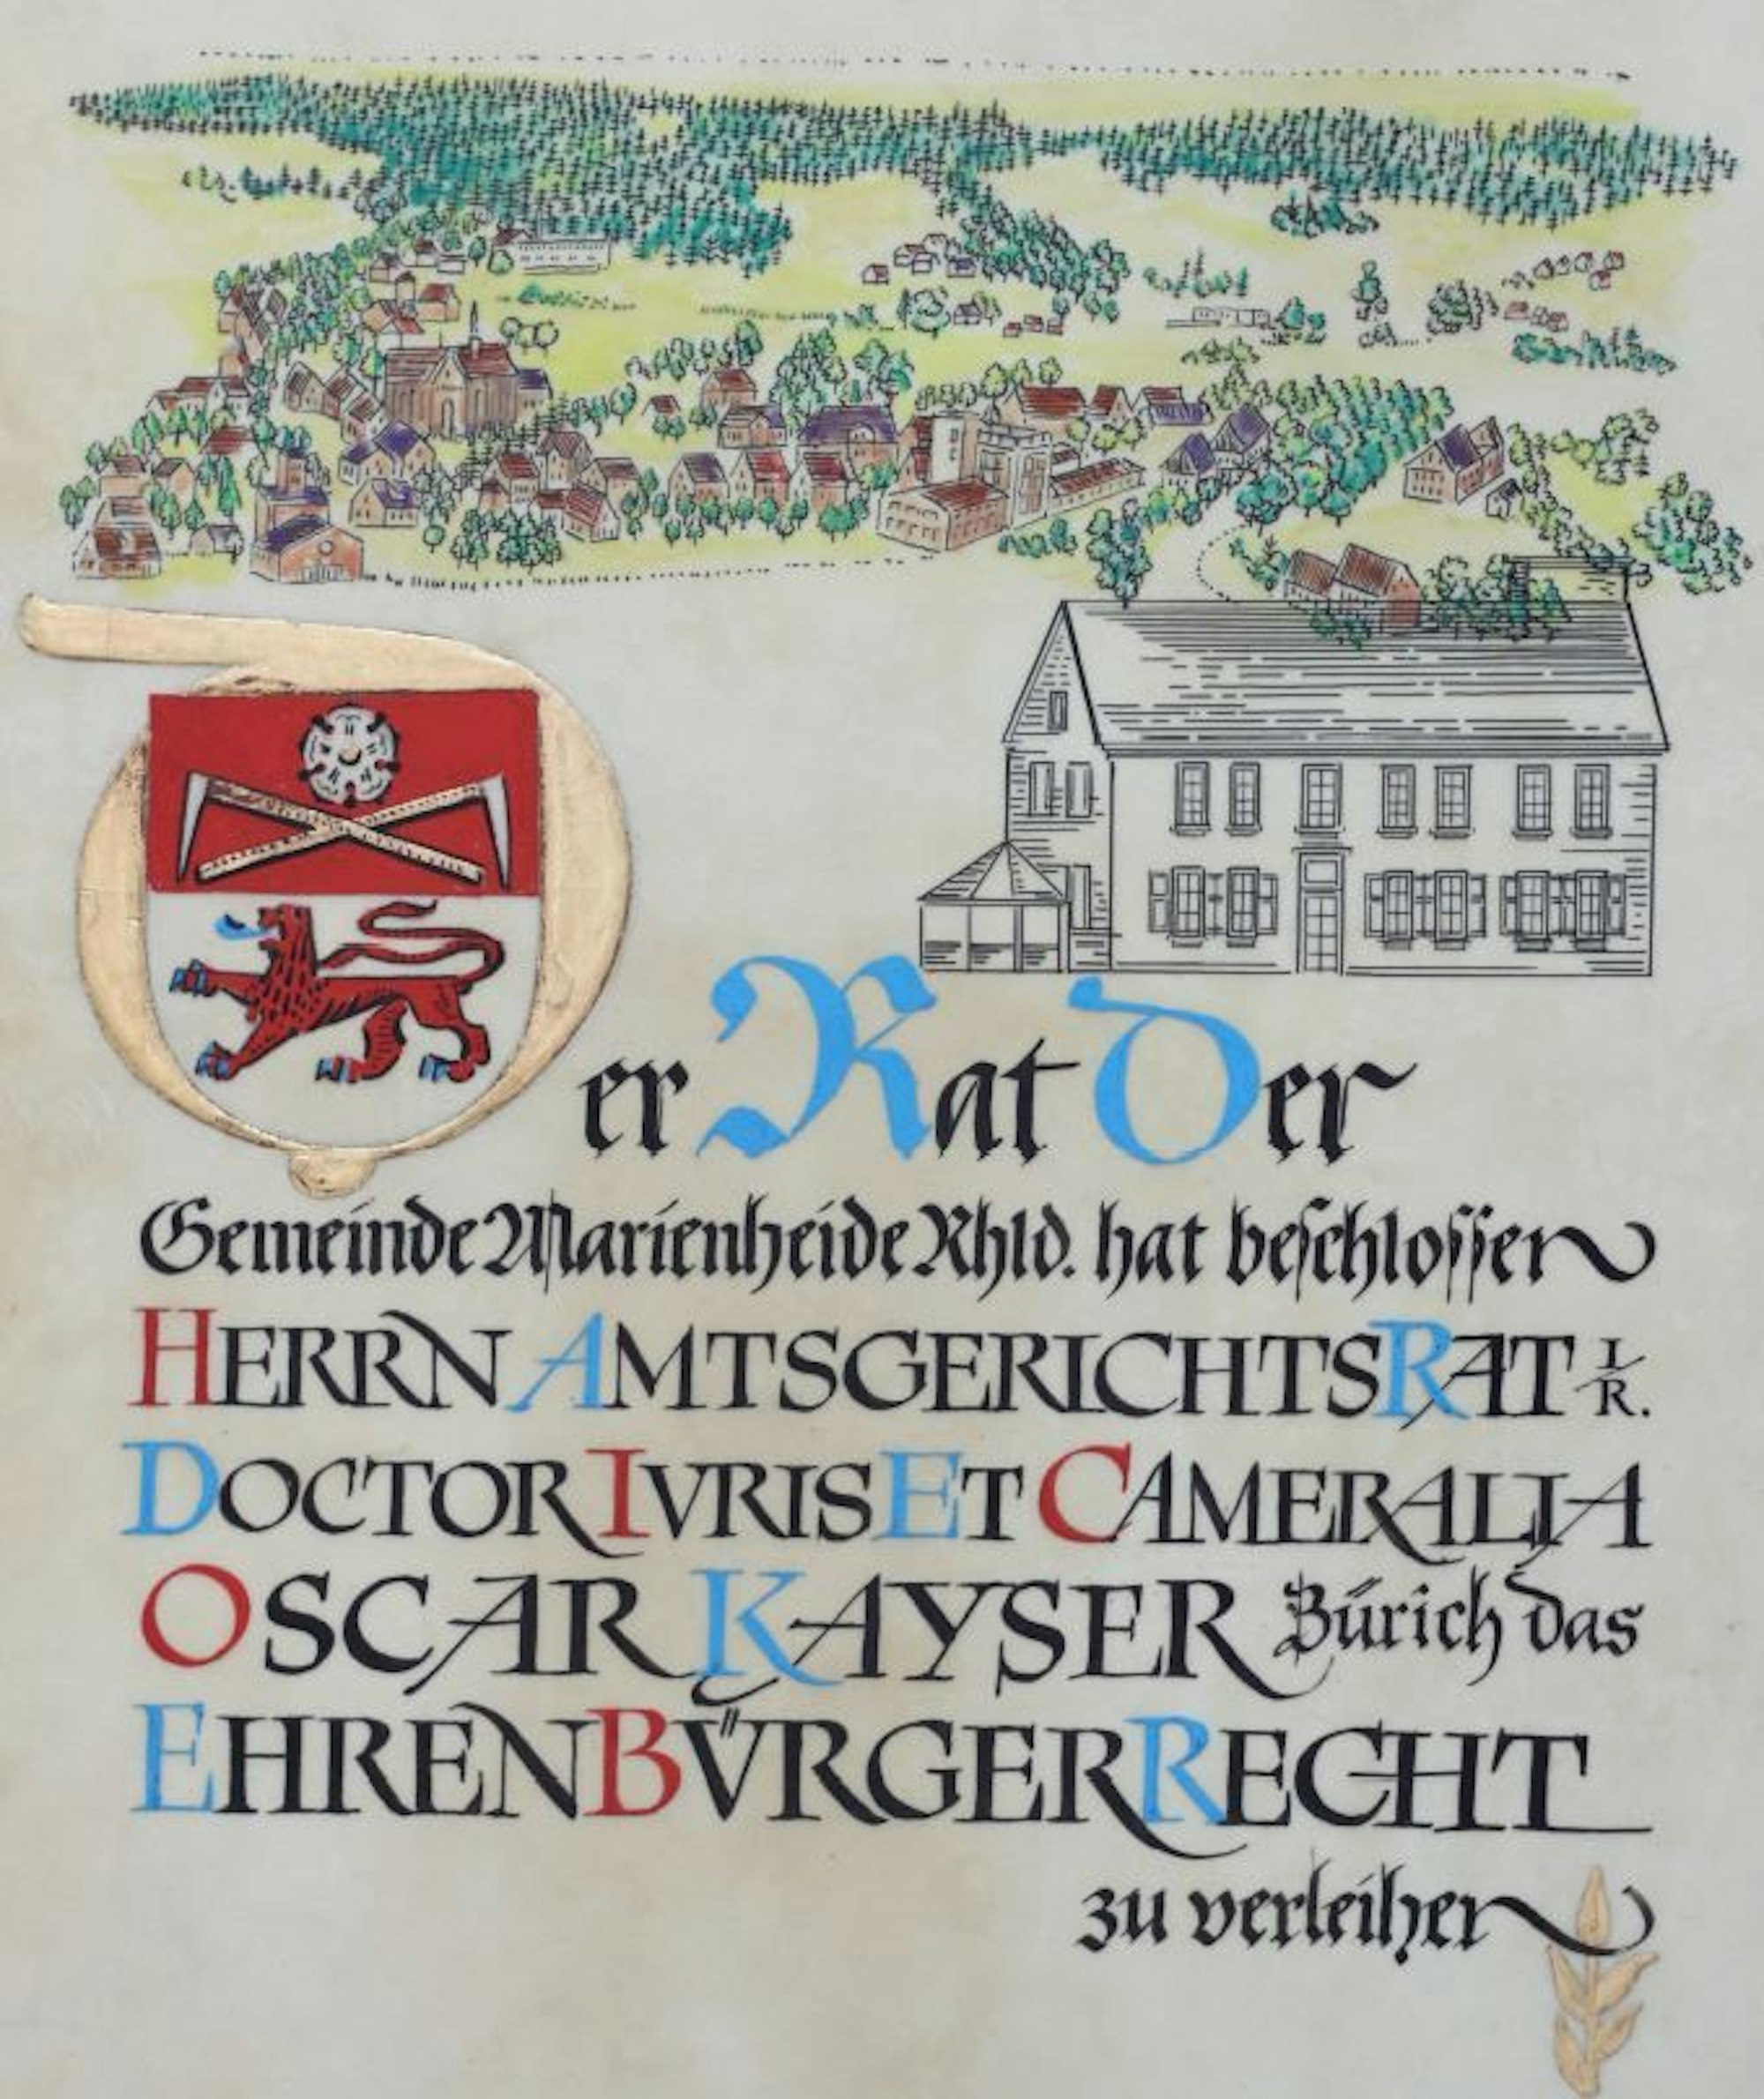 Der Rat der
Gemeinde Marienheide Rhld. hat beschlossen
HERRN AMTSGERICHTSRAT I/R.
DOCTOR IVRIS ET CAMERALIA
OSCAR KAYSER Zürich das
EHRENBÜRGERRECHT
zu verleihen